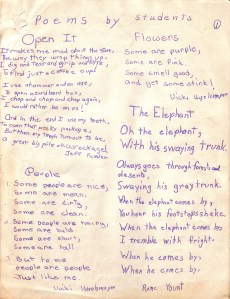 Poems by students
①
Open It
It makes me mad about the stores,
The way they wrap things up.
I dig and tear and grip and
To find just a coffee cup!
I use a hammer and an axe,
To open weird box,
I chop and chop and chop again,
I would rather be an
And in the end I use my teeth,
To open that package,
But then my teeth turned out to be,
A great big pile of wreckage!
Jeff
People
Some people are nice,
Some are mean.
Some people are dirty,
Some are clean.
Some people are hairy,
Some are bald.
Some are short,
Some are tall
But to me
people are people
Just like me.
Vicki
Flowers
Some are purple,
Some are pink.
Some smell good,
and yet some stink!
Vicki
The Elephant
Oh the elephant,
With his swaying trunk.
Always goes through forests and
deserts,
Swaying his gray trunk.
When the elephant comes by,
You hear his footsteps shake.
When the elephant comes by,
I tremble with fright.
When he comes by,
When he comes by,
Rene Yount